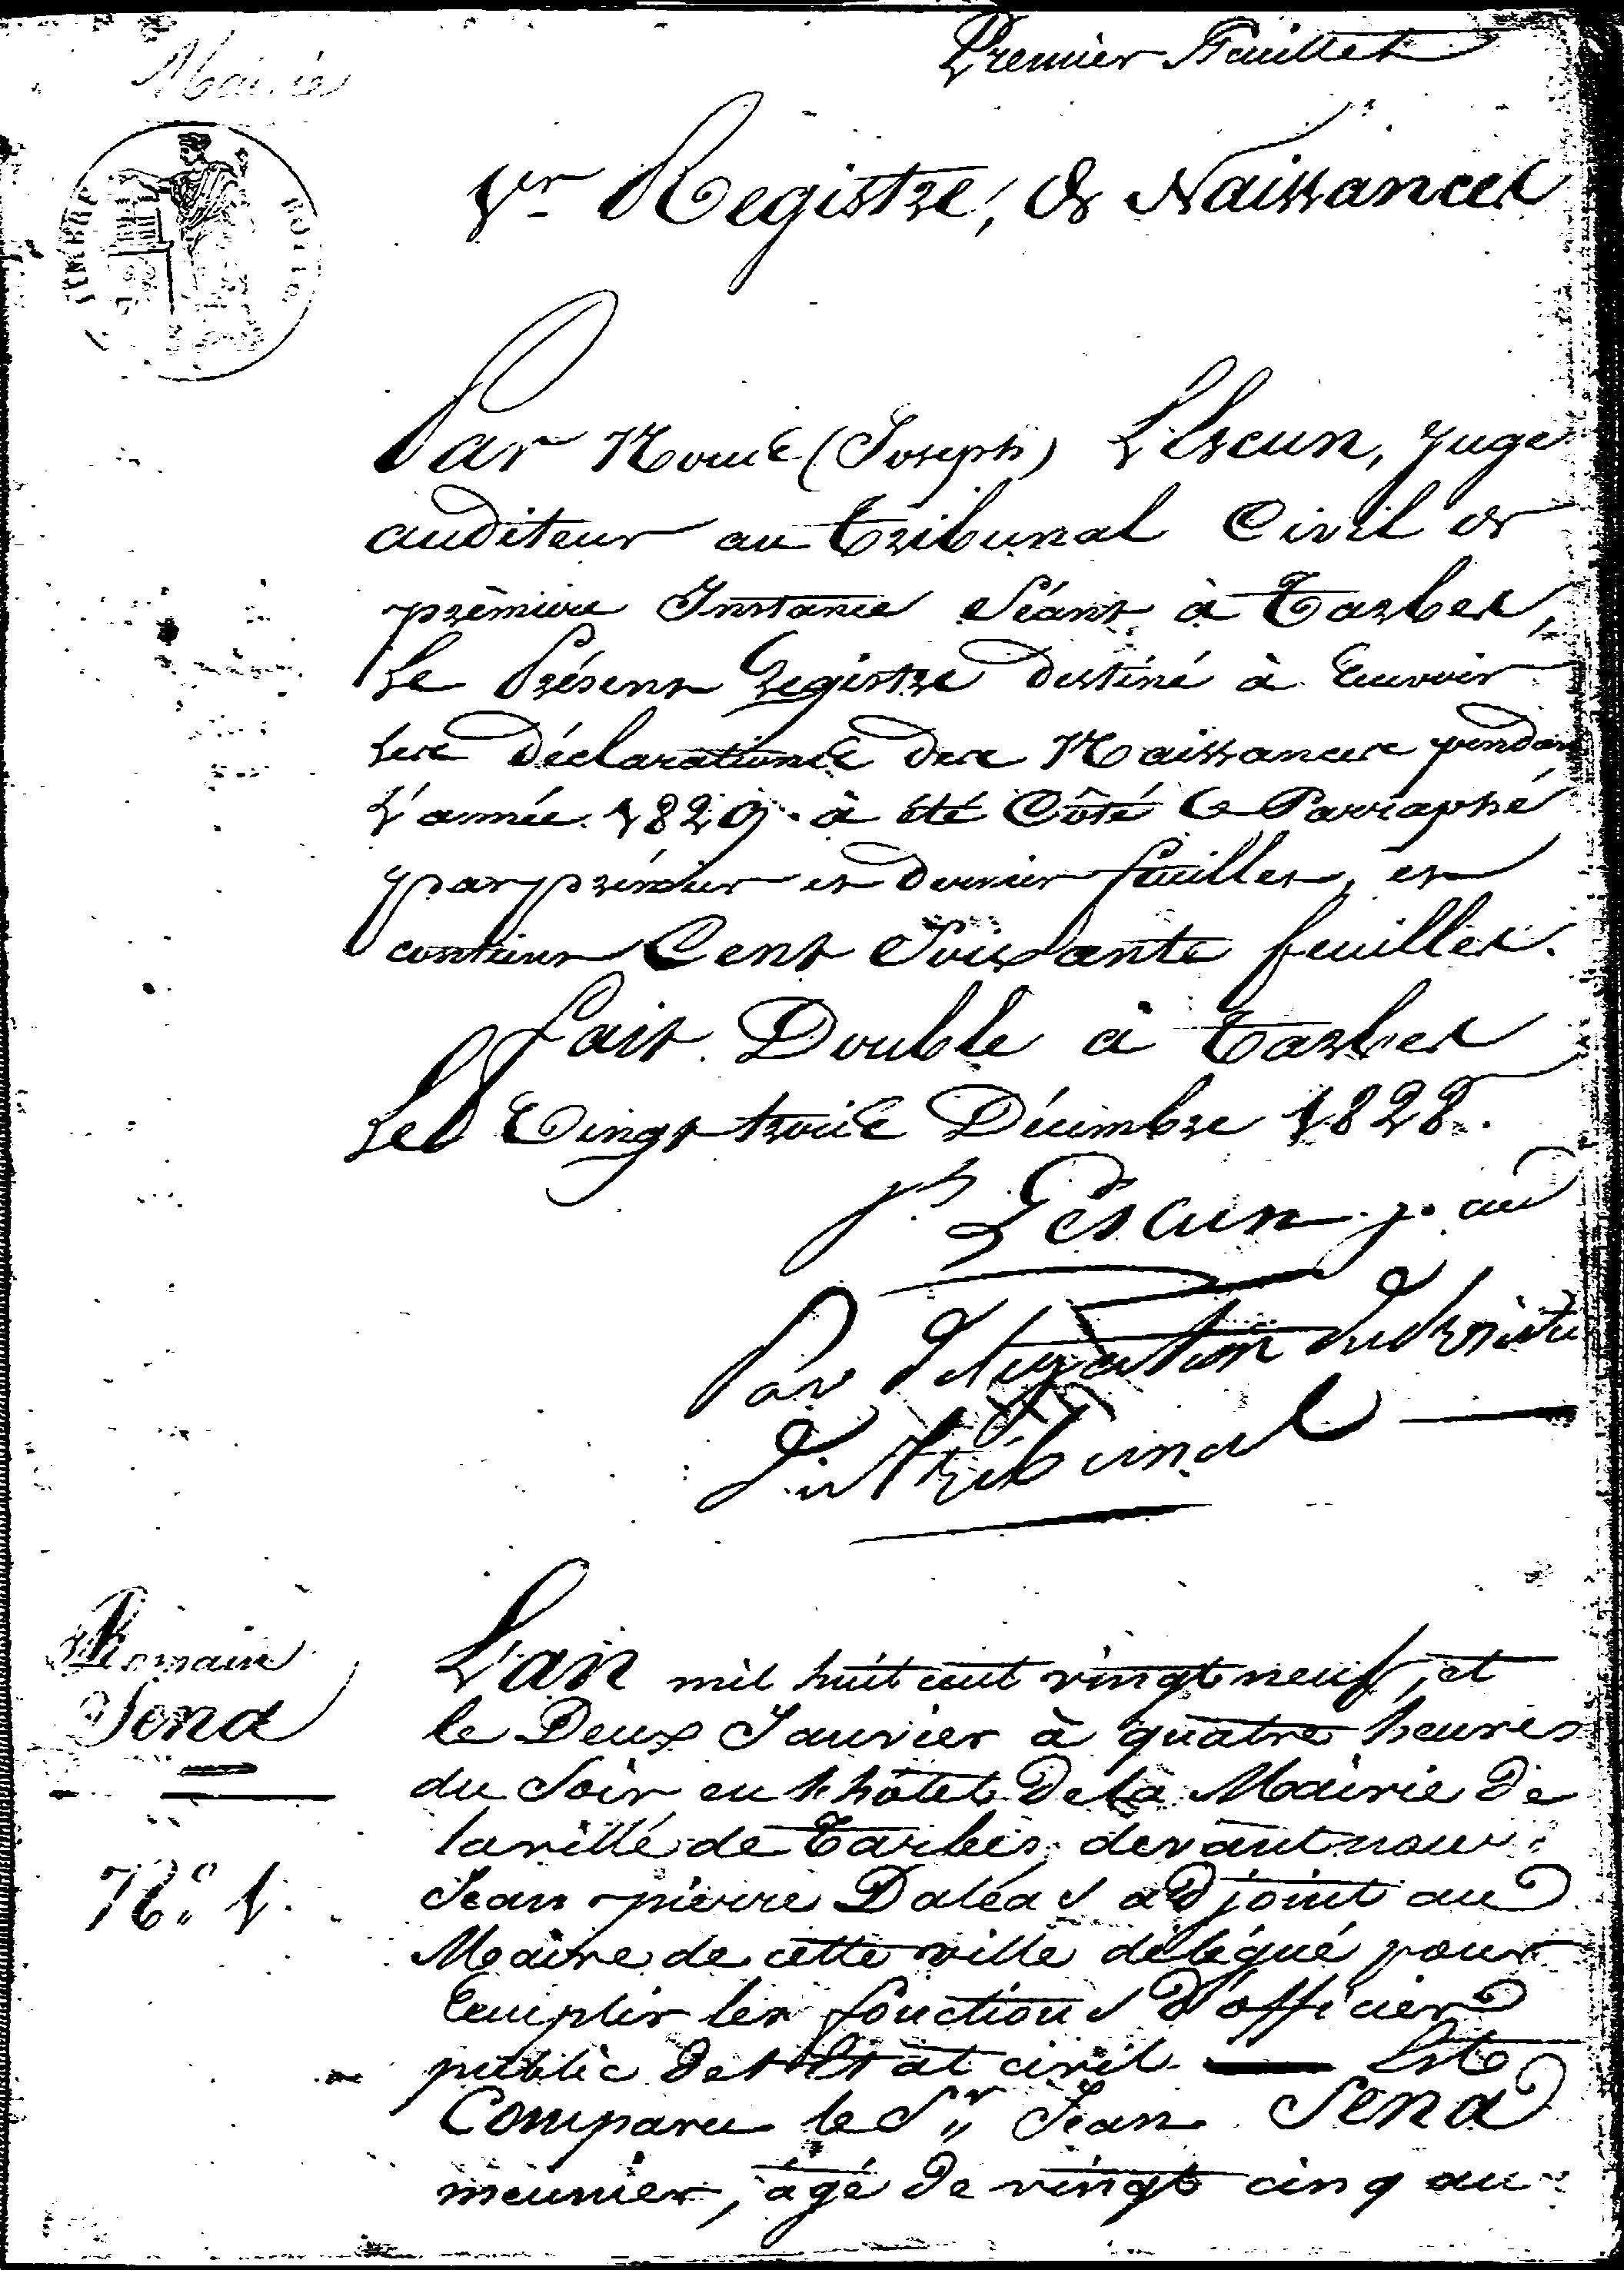 Mairie
Premier Feuillet
TIMBRE ROYAL
1er Registre, de Naissances
Par Nous (Joseph) Lescun, Juge
auditeur au tribunal Civil de
prèmiere Instance Séant à Tarbes,
Le Présent Registre destiné à recevoir
les Déclarations des Naissances pendant
L'année 1829. à été Côté & Parraphé
par prémier et dernier feuillet, et
contient Cent Soixante feuillets.
fait Double à Tarbes
Le Vingt trois Décembre 1828.
Jh Lescun j. aud
Par delegation du Préside
du tribunal
Romain
Sena
N.º 1.
L'an mil huit cent vingt neuf, et
le Deux Janvier à quatre heures
du Soir en l'hôtel de la Mairie de
la ville de Tarbes, devant nous
Jean-pierre Daléas adjoint au
Maire de cette ville délégué pour
remplir les fonctions d'officier
public de l'État civil — Est
Comparu le Sr Jean Sena
meunier, âgé de vingt cinq an